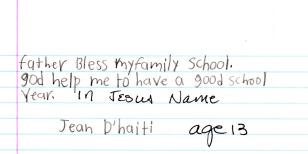 father Bless my family School.
god help me to have a good school
year. in Jesus Name
Jean D'haiti age 13